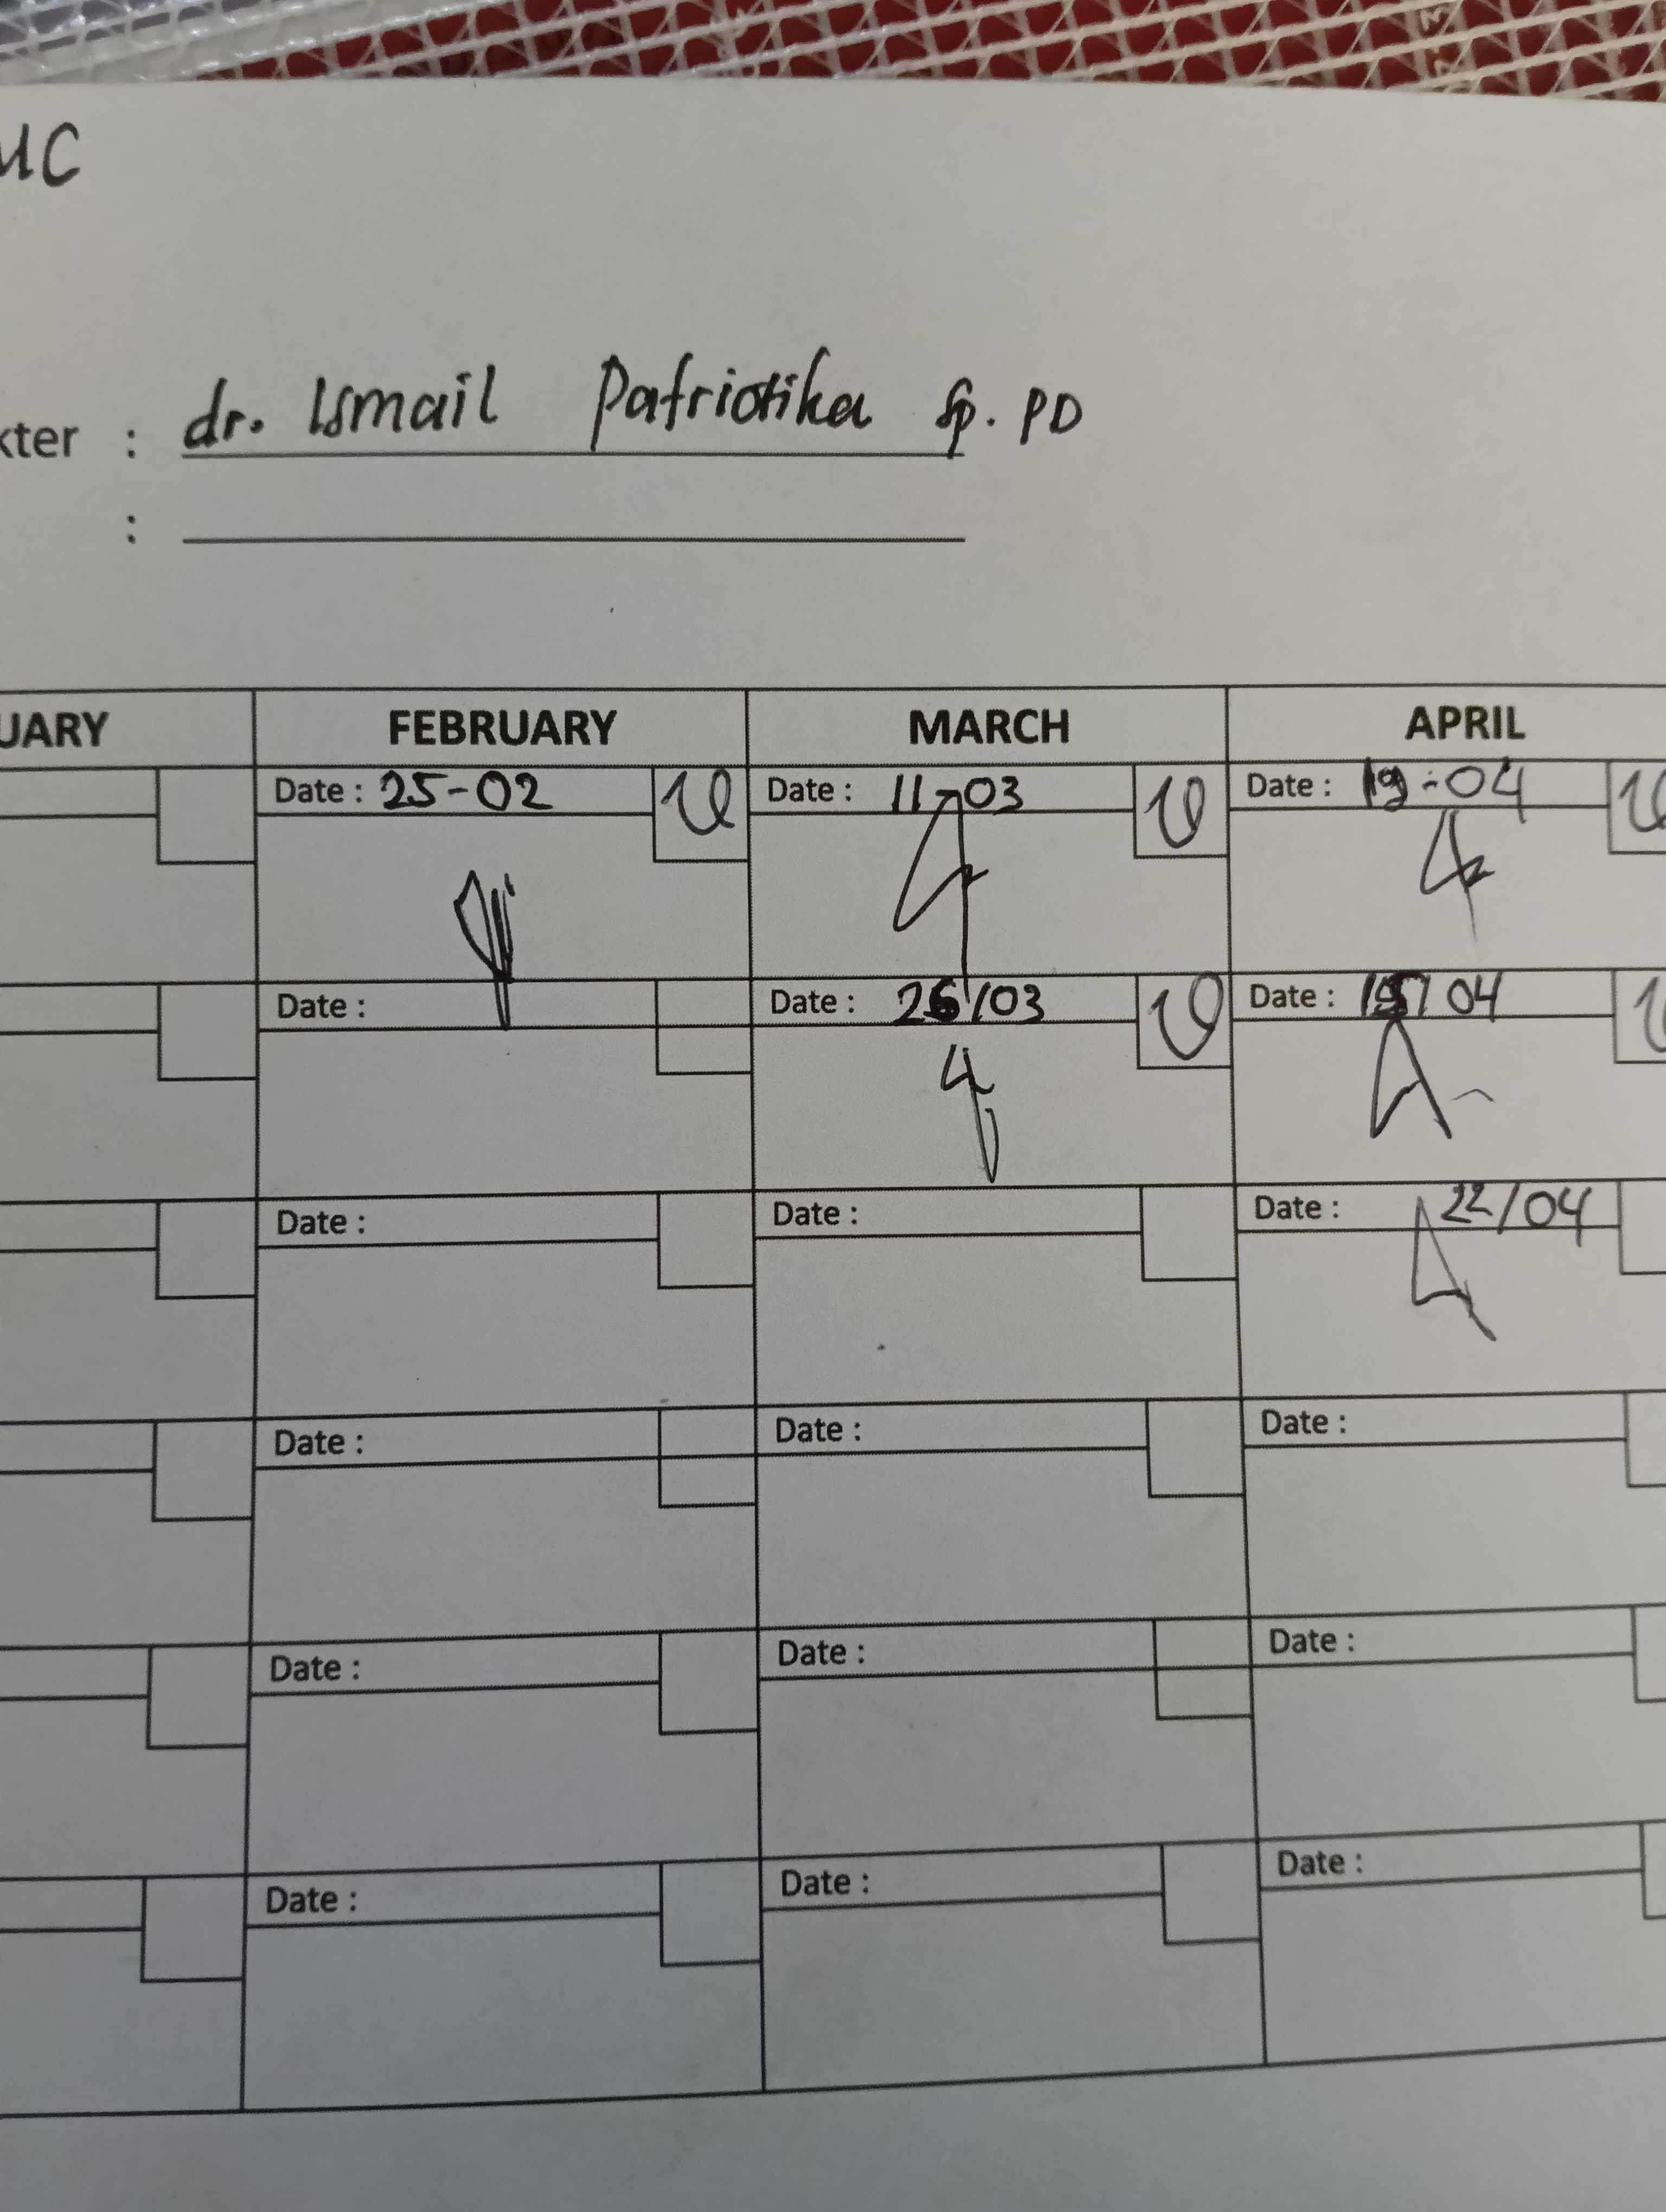 UC
kter : dr. Ismail Patriotika Sp. PD
:
UARY FEBRUARY MARCH APRIL
Date : 25-02 Date : 11-03 Date : -04
Date : Date : 26/03 Date : /04
Date : Date : Date : 22/04
Date : Date : Date :
Date : Date : Date :
Date : Date : Date :